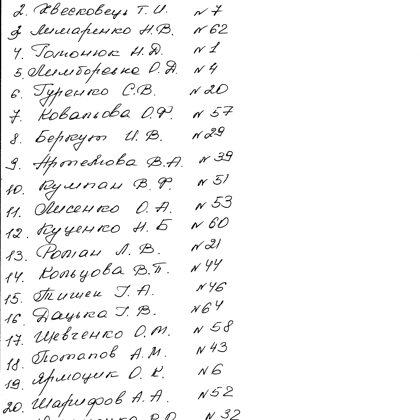 2. Хвесковець Т. И. №7
3. Лимаренко Н. В. №62
4. Гомонюк Н. Д. №1
5. Лимборська О. Д. №4
6. Гуренко С. В. №20
7. Ковальова О. Ф. №57
8. Беркут И. В. №29
9. Артемова В. А. №39
10. Кулман В. Ф. №51
11. Лисенко О. А. №53
12. Куценко Н. Б №60
13. Роман Л. В. №21
14. Кольцова В. П. №44
15. Тишек Г. А. №46
16. Дацька Г. В. №64
17. Шевченко О. М. №58
18. Потапов А. М. №43
19. Ярмощик О. К. №6
20. Шарифов А. А. №52
№32